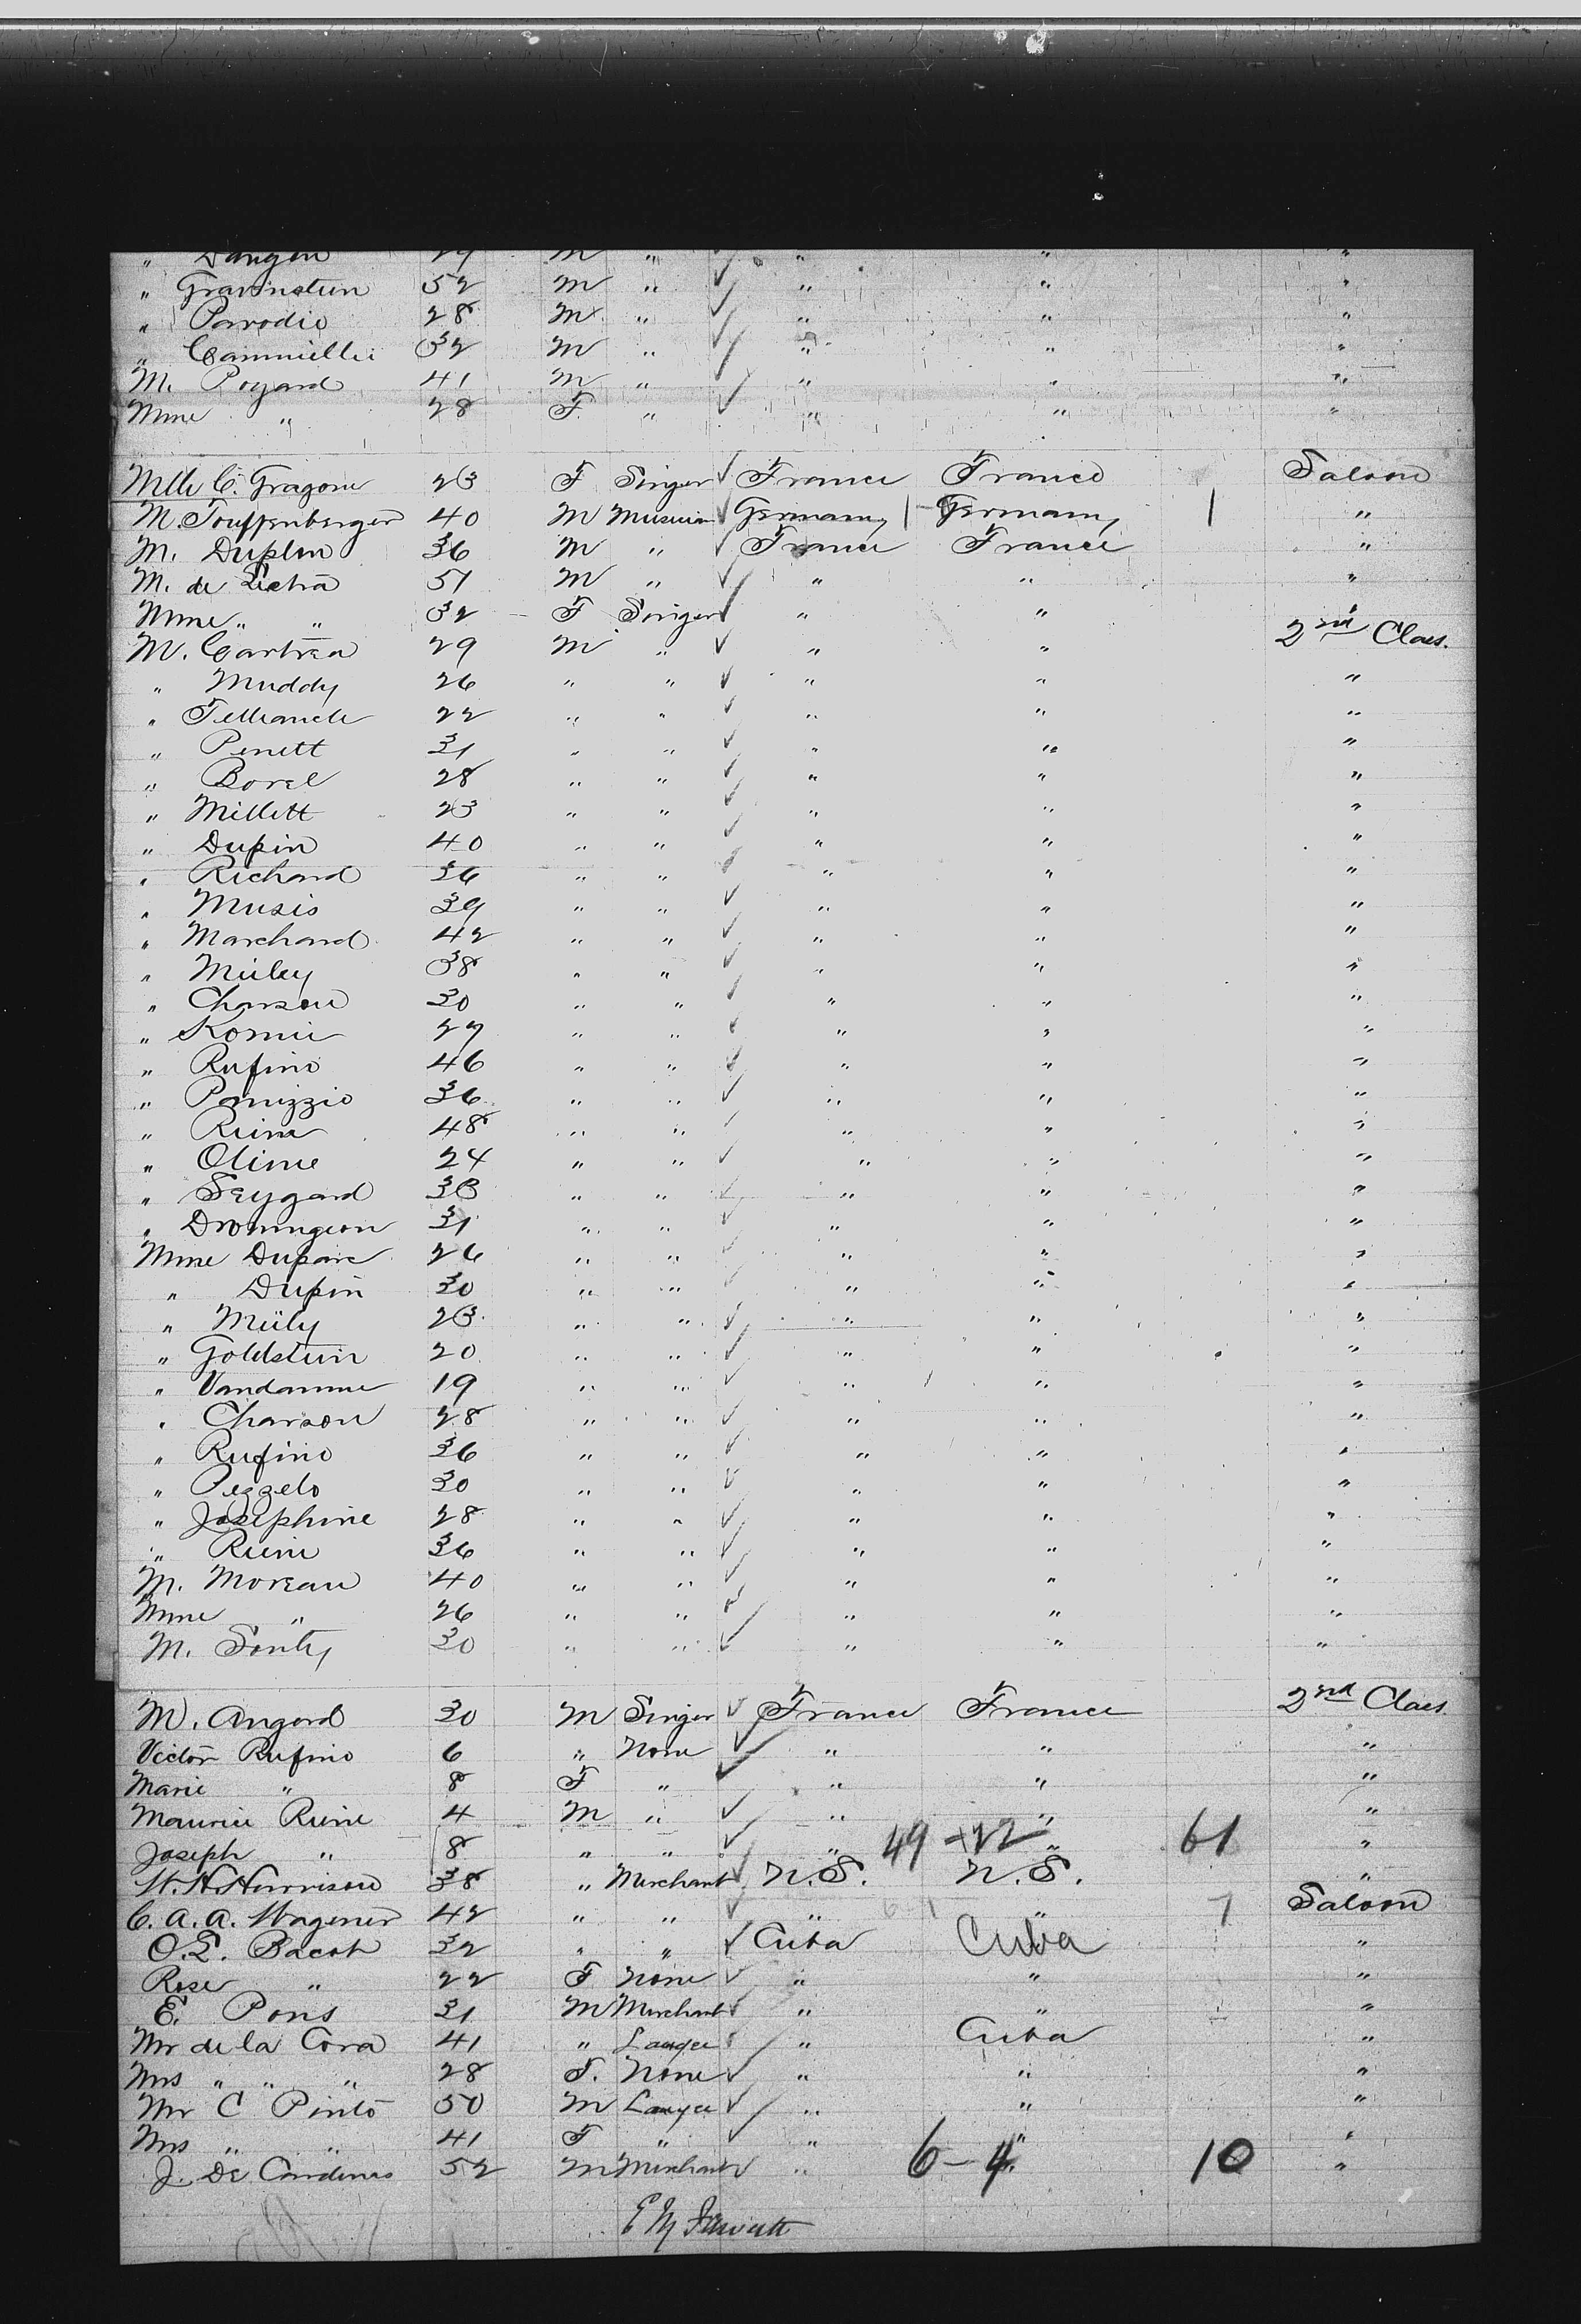 " Dangon 29 M " ✓ " " "
" Gravinstein 52 M " ✓ " " "
" Parodio 28 M " ✓ " " "
" 32 M " ✓ " " "
M. Poyard 41 M " ✓ " " "
Mme " 28 F. " ✓ " " "
Mlle C. Gragone 23 F Singer ✓ France France Saloon
M. Touffenberger 40 M Musician ✓ Germany 1 Germany 1 "
M. Duplin 36 M " ✓ France France "
M. de 51 M " ✓ " " "
Mme " " 32 F Singer ✓ " " "
M. 29 M " ✓ " " 2nd Class.
" Muddy 26 " " ✓ " " "
" 22 " " ✓ " " "
" Penett 31 " " ✓ " " "
" Borel 28 " " ✓ " " "
" Millett 23 " " ✓ " " "
" Dupin 40 " " ✓ " " "
" Richard 36 " " ✓ " " "
" Musis 39 " " ✓ " " "
" Marchand 42 " " ✓ " " "
" Müley 38 " " ✓ " " "
" Chanson 30 " " ✓ " " "
" Romie 27 " " ✓ " " "
" Rufino 46 " " ✓ " " "
" Panizzio 36 " " ✓ " " "
" Reine 48 " " ✓ " " "
" Olime 24 " " ✓ " " "
" Seygard 33 " " ✓ " " "
" 31 " " ✓ " " "
Mme Duparc 26 " " ✓ " " "
" Dupin 30 " " ✓ " " "
" Müly 23 " " ✓ " " "
" Goldstein 20 " " ✓ " " "
" Vandamme 19 " " ✓ " " "
" Chanson 28 " " ✓ " " "
" Rufino 36 " " ✓ " " "
" Pezzelo 30 " " ✓ " " "
" Josephine 28 " " ✓ " " "
" Reine 36 " " ✓ " " "
M. Moreau 40 " " ✓ " " "
Mme " 26 " " ✓ " " "
M. Sonty 30 " " ✓ " " "
M. Angord 30 M Singer ✓ France France 2nd Class.
Victor Rufino 6 " None ✓ " " "
Marie " 8 F " ✓ " " "
Maurice Reine 4 M " ✓ " " "
Joseph " 8 " " ✓ " 49 - 12 " 61 "
W. H. Harrison 38 " Merchant ✓ U.S. U.S. "
C. A. A. Wagener 42 " " ✓ " 6 - 1 " 7 Saloon
O. E. Bacot 32 " " ✓ Cuba Cuba "
Rose " 22 F None ✓ " " "
E. Pons 31 M Merchant ✓ " " "
Mr de la Cova 41 " Lawyer ✓ " Cuba "
Mrs " " " 28 F. None ✓ " " "
Mr C Pinto 50 M Lawyer ✓ " " "
Mrs " " 41 F " ✓ " " "
J. De Cardenas 52 M Merchant ✓ " 6 - 4 " 10 "